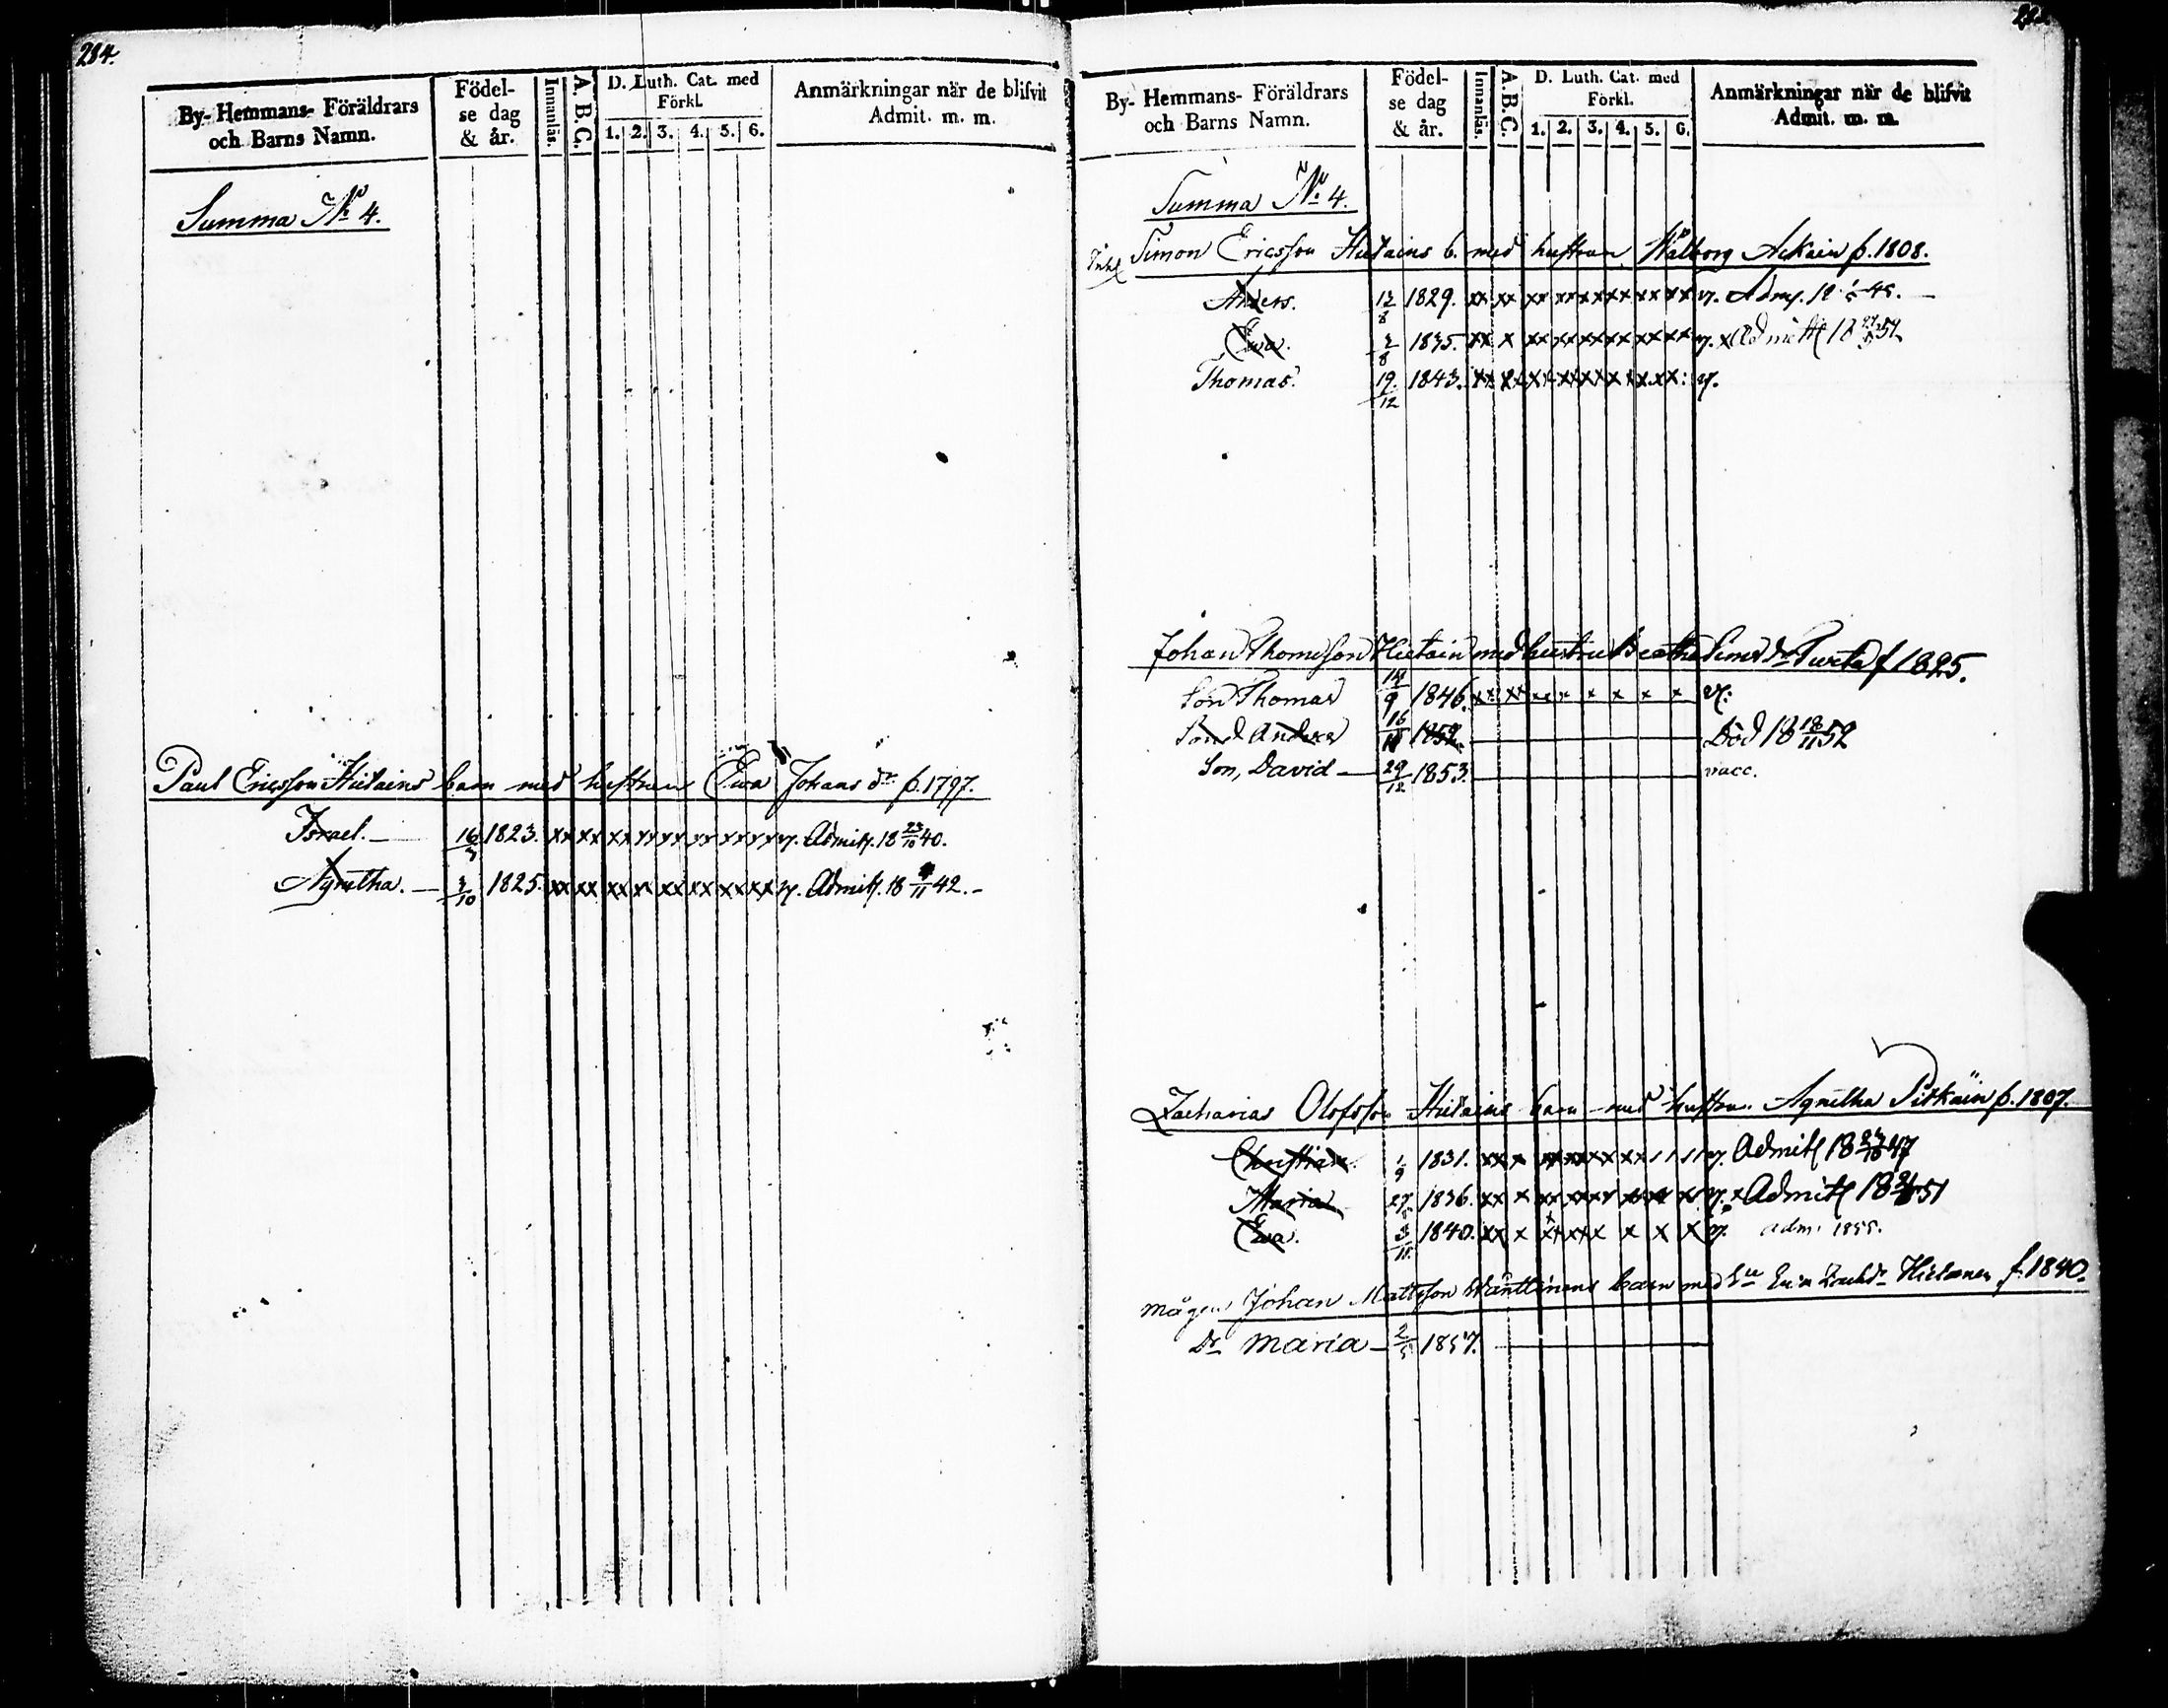 284.
By- Hemmans- Föräldrars
och Barns Namn.
Födel-
se dag
& år.
Innanläs.
A. B. C.
D. Luth. Cat. med
Förkl.
1. 2. 3. 4. 5. 6.
Anmärkningar när de blifvit
Admit. m. m.
Summa No 4.
Paul Ericsson Hietains barn med hustrun Ewa Johans dr f. 1797.
Israel. 16 1823. xx xx xx xx xx xx xx xx v. Admitt. 18 23/10 40.
Agnetha. 3/10 1825. xx xx xx xx xx xx xx xx v. Admitt. 18 /11 42.
By- Hemmans- Föräldrars
och Barns Namn.
Födel-
se dag
& år.
Innanläs.
A. B. C.
D. Luth. Cat. med
Förkl.
1. 2. 3. 4. 5. 6.
Anmärkningar när de blifvit
Admit. m. m.
Summa No 4.
Simon Ericsson Hietains b. med hustrun Walborg Ackain f. 1808.
Anders. 12/8 1829. xx xx xx xx xx xx xx xx v.
Ewa. 1835. xx x xx xx xx xx xx xx v. x Admitt 18 52
Thomas. 19/12 1843. v.
Johan Thomsson Hietain med hustru Beatha f 1825.
Son Thomas 14/9 1846. xx xx xx x x x x x v.
Son d Anders 16/11 1852. Död 18 18/11 52
Son, David 29/12 1853. vacc.
Zacharias Olofsson Hietains barn med hustrun Agnetha Pitkäin f. 1807.
Christian. 1/9 1831. v. Admitt 18 47
Maria 27 1836. v. x Admitt 18 51
Ewa. 3/11 1840. v. adm. 1855.
Mågen Johan Mattsson Wänttinens barn med Hu Eva Zachdr Hietanen f. 1840.
Dr Maria 2/5 1857.